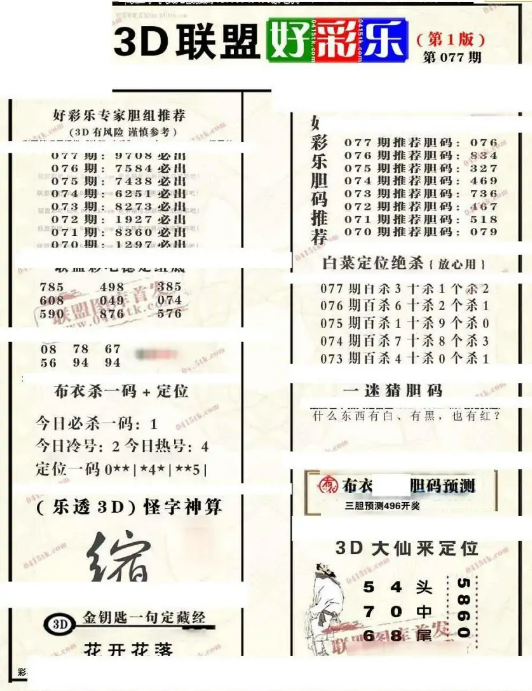 3D联盟好彩乐
(第1版)
第077期
好彩乐专家胆组推荐
(3D有风险 谨慎参考)
077期:9708必出
076期:7584必出
075期:7438必出
074期:6251必出
073期:8273必出
072期:1927必出
071期:8360必出
070期:1297必出
785 498 385
608 049 074
590 876 576
联盟图库首发
08 78 67
56 94 94
布衣杀一码+定位
今日必杀一码:1
今日冷号:2 今日热号:4
定位一码0**|*4*|**5|
(乐透3D)怪字神算
缩
3D
金钥匙一句定藏经
花开花落
彩
彩乐胆码推荐
077期推荐胆码:076
076期推荐胆码:834
075期推荐胆码:327
074期推荐胆码:469
073期推荐胆码:736
072期推荐胆码:467
071期推荐胆码:518
070期推荐胆码:079
白菜定位绝杀{放心用}
077期百杀3十杀1个杀2
076期百杀6十杀2个杀1
075期百杀1十杀9个杀0
074期百杀7十杀8个杀3
073期百杀4十杀0个杀1
一迷猜胆码
什么东西有白、有黑,也有红?
布衣 胆码预测
三胆预测496开奖
3D大仙来定位
5 4 头
7 0 中
6 8 尾
5860
联盟图库首发